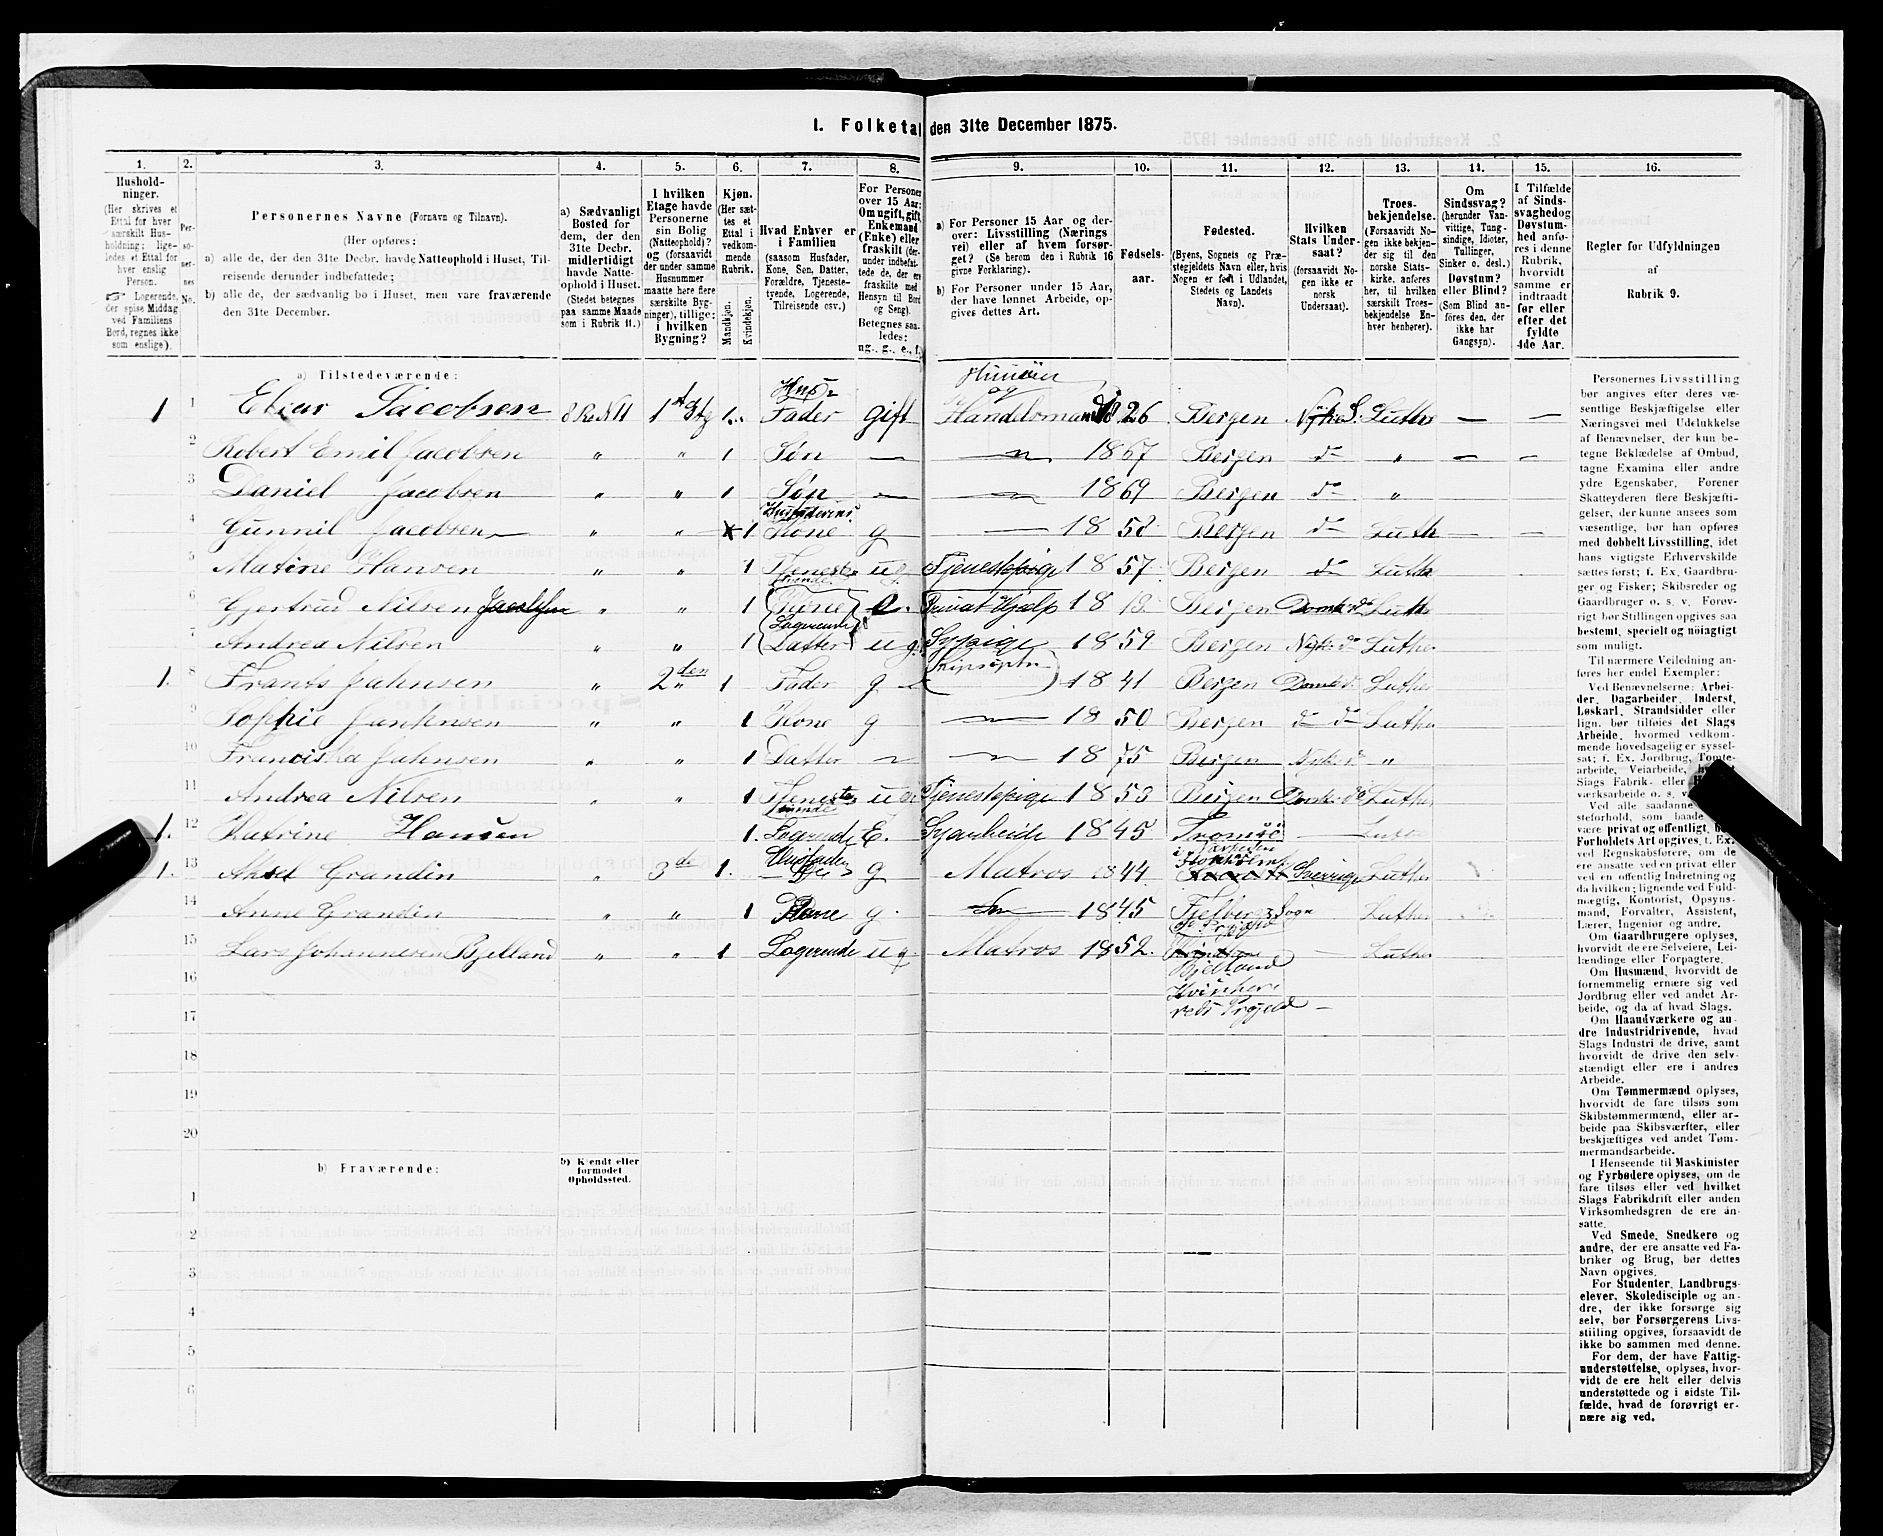 1. Folketal den 31te December 1875.
1. 2. 3. 4. 5. 6. 7. 8. 9. 10. 11. 12. 13. 14. 15. 16.
Hushold-
ninger.
(Her skrives et
Ettal for hver
særskilt Hus-
holdning; lige-
ledes et Ettal for
hver enslig
Person.
Logerende,
der spise Middag
ved Familiens
Bord, regnes ikke
som enslige).
Per-
so-
ner-
nes
No.
Personernes Navne (Fornavn og Tilnavn).
(Her opføres:
a) alle de, der den 31te Decbr. havde Natteophold i Huset, Til-
reisende derunder indbefattede;
b) alle de, der sædvanlig bo i Huset, men vare fraværende
den 31te December.
a) Sædvanligt
Bosted for
dem, der den
31te Decbr.
midlertidigt
havde Natte-
ophold i Huset.
(Stedet betegnes
paa samme Maade
som i Rubrik 11.)
I hvilken
Etage havde
Personerne
sin Bolig
(Natteophold)?
og (forsaavidt
der under samme
Husnummer
maatte høre flere
særskilte Byg-
ninger), tillige:
i hvilken
Bygning?
Kjøn.
(Her sæt-
tes et
Ettal i
vedkom-
mende
Rubrik.
Mandkjøn.
Kvindekjøn.
Hvad Enhver er
i Familien
(saasom Husfader,
Kone, Søn, Datter,
Forældre, Tjeneste-
tyende, Logerende,
Tilreisende osv.)
For Personer
over 15 Aar:
Om ugift, gift,
Enkemand
(Enke) eller
fraskilt (der-
under indbefat-
tede de, der ere
fraskilte med
Hensyn til Bord
og Seng).
Betegnes saa-
ledes:
ug., g., e., f.
a) For Personer 15 Aar og der-
over: Livsstilling (Nærings-
vei) eller af hvem forsør-
get? (Se herom den i Rubrik 16
givne Forklaring).
b) For Personer under 15 Aar,
der have lønnet Arbeide, op-
gives dettes Art.
Fødsels-
aar.
Fødested.
(Byens, Sognets og Præ-
stegjeldets Navn eller, hvis
Nogen er født i Udlandet,
Stedets og Landets
Navn).
Hvilken
Stats Under-
saat?
(forsaavidt No-
gen ikke er
norsk
Undersaat).
Troes-
bekjendelse.
(Forsaavidt No-
gen ikke bekjen-
der sig til den
norske Stats-
kirke, anføres
her, til hvilken
særskilt Troes-
bekjendelse En-
hver henhører).
Om
Sindssvag?
(herunder Van-
vittige, Tung-
sindige, Idioter,
Tullinger,
Sinker o. desl.)
Døvstum?
eller Blind?
(Som Blind an-
føres den, der
ikke har
Gangsyn).
I Tilfælde
af Sinds-
svaghed og
Døvstum-
hed anfø-
res i denne
Rubrik,
hvorvidt
samme er
indtraadt
før eller
efter det
fyldte
4de Aar.
Regler for Udfyldningen
af
Rubrik 9.
a) Tilstedeværende:
1 1 Elias Jacobsen 1 1 Hus- Fader gift og Handelsmand 1826 Bergen Luth — —
2 Robert Emil Jacobsen " " 1 Søn — — 1867 Bergen do " — —
3 Daniel Jacobsen " " 1 Søn — — 1869 Bergen do "
4 Gunnil Jacobsen " " 1 Kone g — 1858 Bergen do Luth — —
5 Matine Hansen " " 1 ug. Tjenestepige 1857 Bergen do Luth
6 Gjertrud Nilsen " " 1 Kone e. Privat Hjælp 18 Bergen Luth
7 Andrea Nilsen " " 1 Logerende Datter ug. Sypige 1859 Bergen Luther
1. 8 Frants Jahnsen " 2den 1 Fader g 1841 Bergen Luther
9 Sophie Jahnsen " " 1 Kone g — 1850 Bergen Luther
10 Franciska Jahnsen " " 1 Datter — — 1875 Bergen "
11 Andrea Nilsen " " 1 ug Tjenestepige 1853 Bergen Luther
1. 12 Katrine Hansen 1. Logerende E. Syarbeide 1845 Tromsø —
1. 13 Aksel Grandin " 3de 1. g Matros 1844 Sverrige Luther
14 Anne Grandin " " 1 Kone g. 1845 Fjelbergs Sogn Luther
15 Lars Johannesen Bjelland " " 1 Logerende ug Matros 1852. Bjelland i Luther
16
17
18
19
20
b) Fraværende:
b) Kjendt eller
formodet
Opholdssted.
1
2
3
4
5
6
Personernes Livsstilling
bør angives efter deres væ-
sentlige Beskjæftigelse eller
Næringsvei med Udelukkelse
af Benævnelser, der kun be-
tegne Beklædelse af Ombud,
tagne Examina eller andre
ydre Egenskaber. Forener
Skatteyderen flere Beskjæfti-
gelser, der kunne ansees som
væsentlige, bør han opføres
med dobbelt Livsstilling, idet
hans vigtigste Erhvervskilde
sættes først; f. Ex. Gaardbru-
ger og Fisker; Skibsreder og
Gaardbruger o. s. v. Forøv-
rigt bør Stillingen opgives saa
bestemt, specielt og nøiagtigt
som muligt.
Til nærmere Veiledning an-
føres her endel Exempler:
Ved Benævnelserne: Arbei-
der, Dagarbeider, Inderst,
Løskarl, Strandsidder eller
lign. bør tilføies det Slags
Arbeide, hvormed vedkom-
mende hovedsagelig er syssel-
sat; f. Ex. Jordbrug, Tomte-
arbeide, Veiarbeide,
Slags Fabrik- eller
værksarbeide o. s.
Ved alle saadanne
steforhold, som baade
være privat og offentligt,
Forholdets Art opgives, t. Ex.
ved Regnskabsførere, om de
ere ansatte ved en privat eller
ved en offentlig Indretning og
da hvilken; lignende ved Fuld-
mægtig, Kontorist, Opsyns-
mand, Forvalter, Assistent,
Lærer, Ingeniør og andre.
Om Gaardbrugere oplyses,
hvorvidt de ere Selveiere, Lei-
lændinge eller Forpagtere.
Om Husmænd, hvorvidt de
fornemmelig ernære sig ved
Jordbrug eller ved andet Ar-
beide, og da af hvad Slags.
Om Haandværkere og an-
dre Industridrivende, hvad
Slags Industri de drive, samt
hvorvidt de drive den selv-
stændigt eller ere i andres
Arbeide.
Om Tømmermænd oplyses,
hvorvidt de fare tilsøs som
Skibstømmermænd, eller ar-
beide paa Skibsværfter, eller
beskjæftiges ved andet Tøm-
mermandsarbeide.
I Henseende til Maskinister
og Fyrbødere oplyses, om de
fare tilsøs eller ved hvilket
Slags Fabrikdrift eller anden
Virksomhedsgren de ere an-
satte.
Ved Smede, Snedkere og
andre, der ere ansatte ved Fa-
briker og Brug, bør dettes
Navn opgives.
For Studenter, Landbrugs-
elever, Skoledisciple og an-
dre, der ikke forsørge sig
selv, bør Forsørgerens Livs-
stilling opgives, forsaavidt de
ikke bo sammen med denne.
For dem, der have Fattig-
understøttelse, oplyses, hvor-
vidt de ere helt eller delvis
understøttede og i sidste Til-
fælde, hvad de forøvrigt er-
nære sig ved.